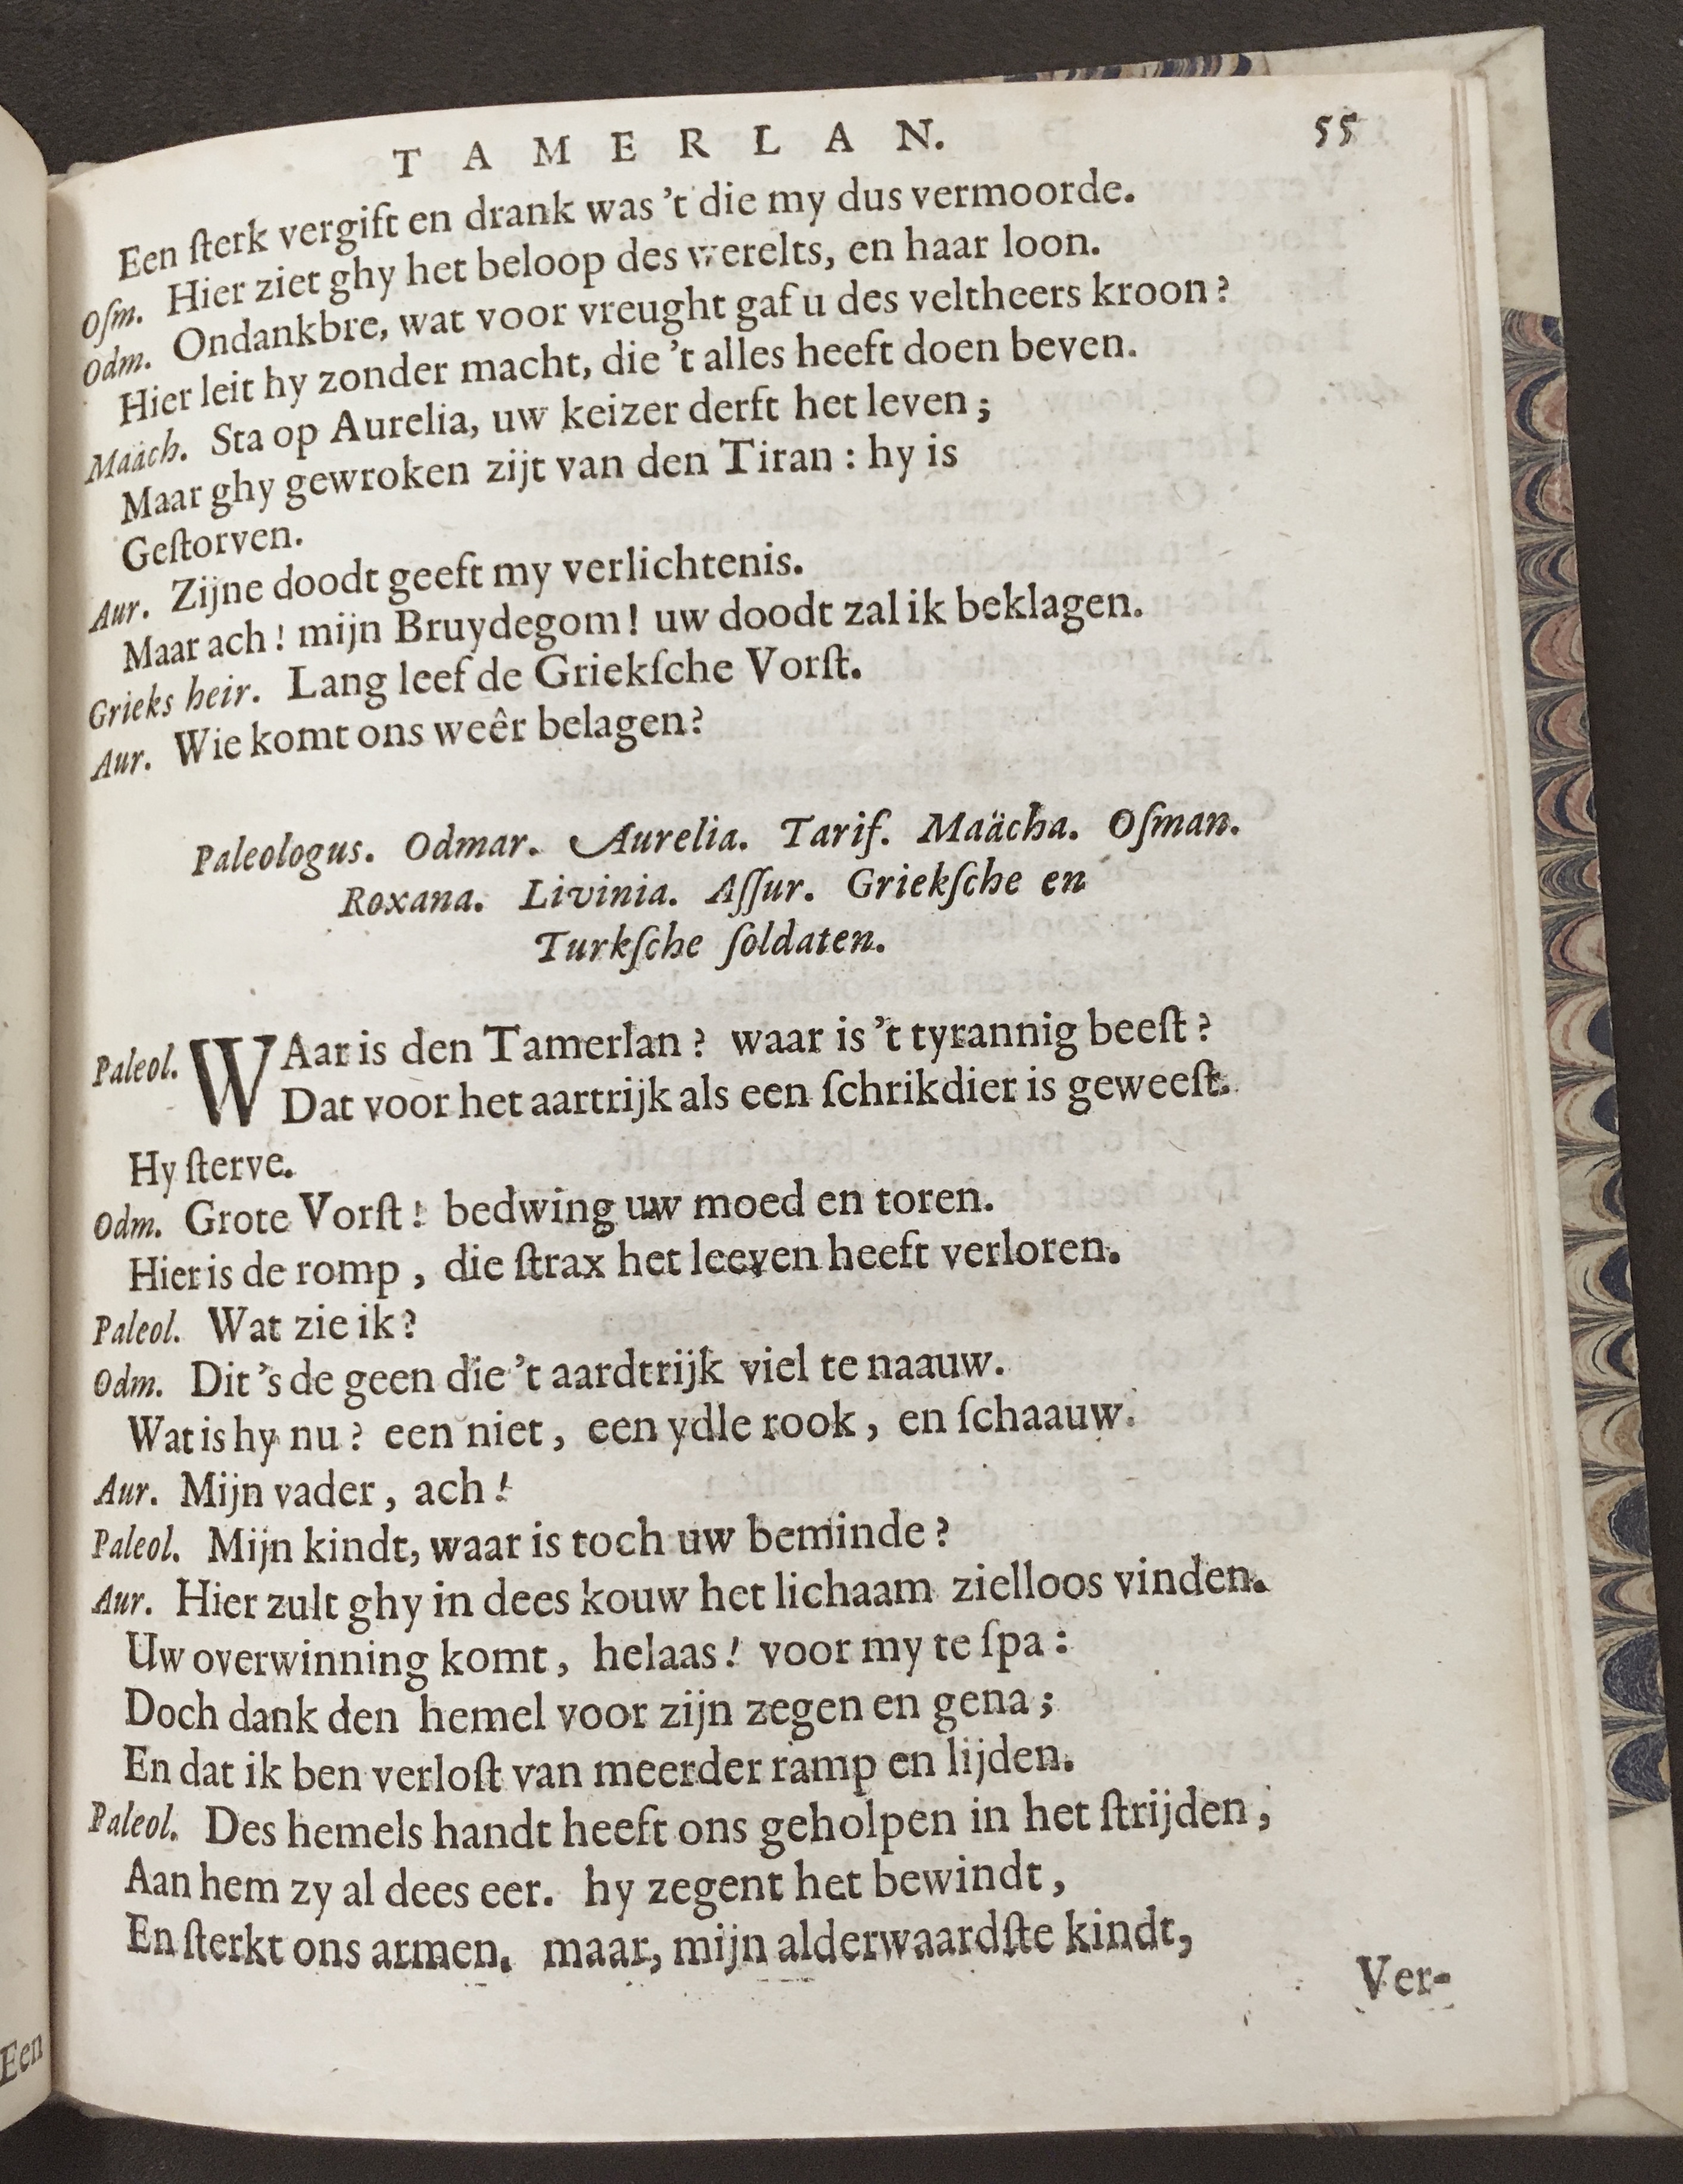 TAMERLAN. 55
Een ſterk vergift en drank was 't die my dus vermoorde.
Oſm. Hier ziet ghy het beloop des werelts, en haar loon.
Odm. Ondankbre, wat voor vreught gaf u des veltheers kroon?
Hier leit hy zonder macht, die 't alles heeft doen beven.
Maäch. Sta op Aurelia, uw keizer derft het leven;
Maar ghy gewroken zijt van den Tiran: hy is
Geſtorven.
Aur. Zijne doodt geeft my verlichtenis.
Maar ach! mijn Bruydegom! uw doodt zal ik beklagen.
Grieks heir. Lang leef de Griekſche Vorſt.
Aur. Wie komt ons weêr belagen?
Paleologus. Odmar. Aurelia. Tarif. Maächa. Oſman.
Roxana. Livinia. Aſſur. Griekſche en
Turkſche ſoldaten.
Paleol. WAar is den Tamerlan? waar is 't tyrannig beeſt?
Dat voor het aartrijk als een ſchrikdier is geweeſt.
Hy ſterve.
Odm. Grote Vorſt! bedwing uw moed en toren.
Hier is de romp, die ſtrax het leeven heeft verloren.
Paleol. Wat zie ik?
Odm. Dit 's de geen die 't aardtrijk viel te naauw.
Wat is hy nu? een niet, een ydle rook, en ſchaauw.
Aur. Mijn vader, ach!
Paleol. Mijn kindt, waar is toch uw beminde?
Aur. Hier zult ghy in dees kouw het lichaam zielloos vinden.
Uw overwinning komt, helaas! voor my te ſpa:
Doch dank den hemel voor zijn zegen en gena;
En dat ik ben verloſt van meerder ramp en lijden.
Paleol. Des hemels handt heeft ons geholpen in het ſtrijden,
Aan hem zy al dees eer. hy zegent het bewindt,
En ſterkt ons armen. maar, mijn alderwaardſte kindt,
Ver-
Een